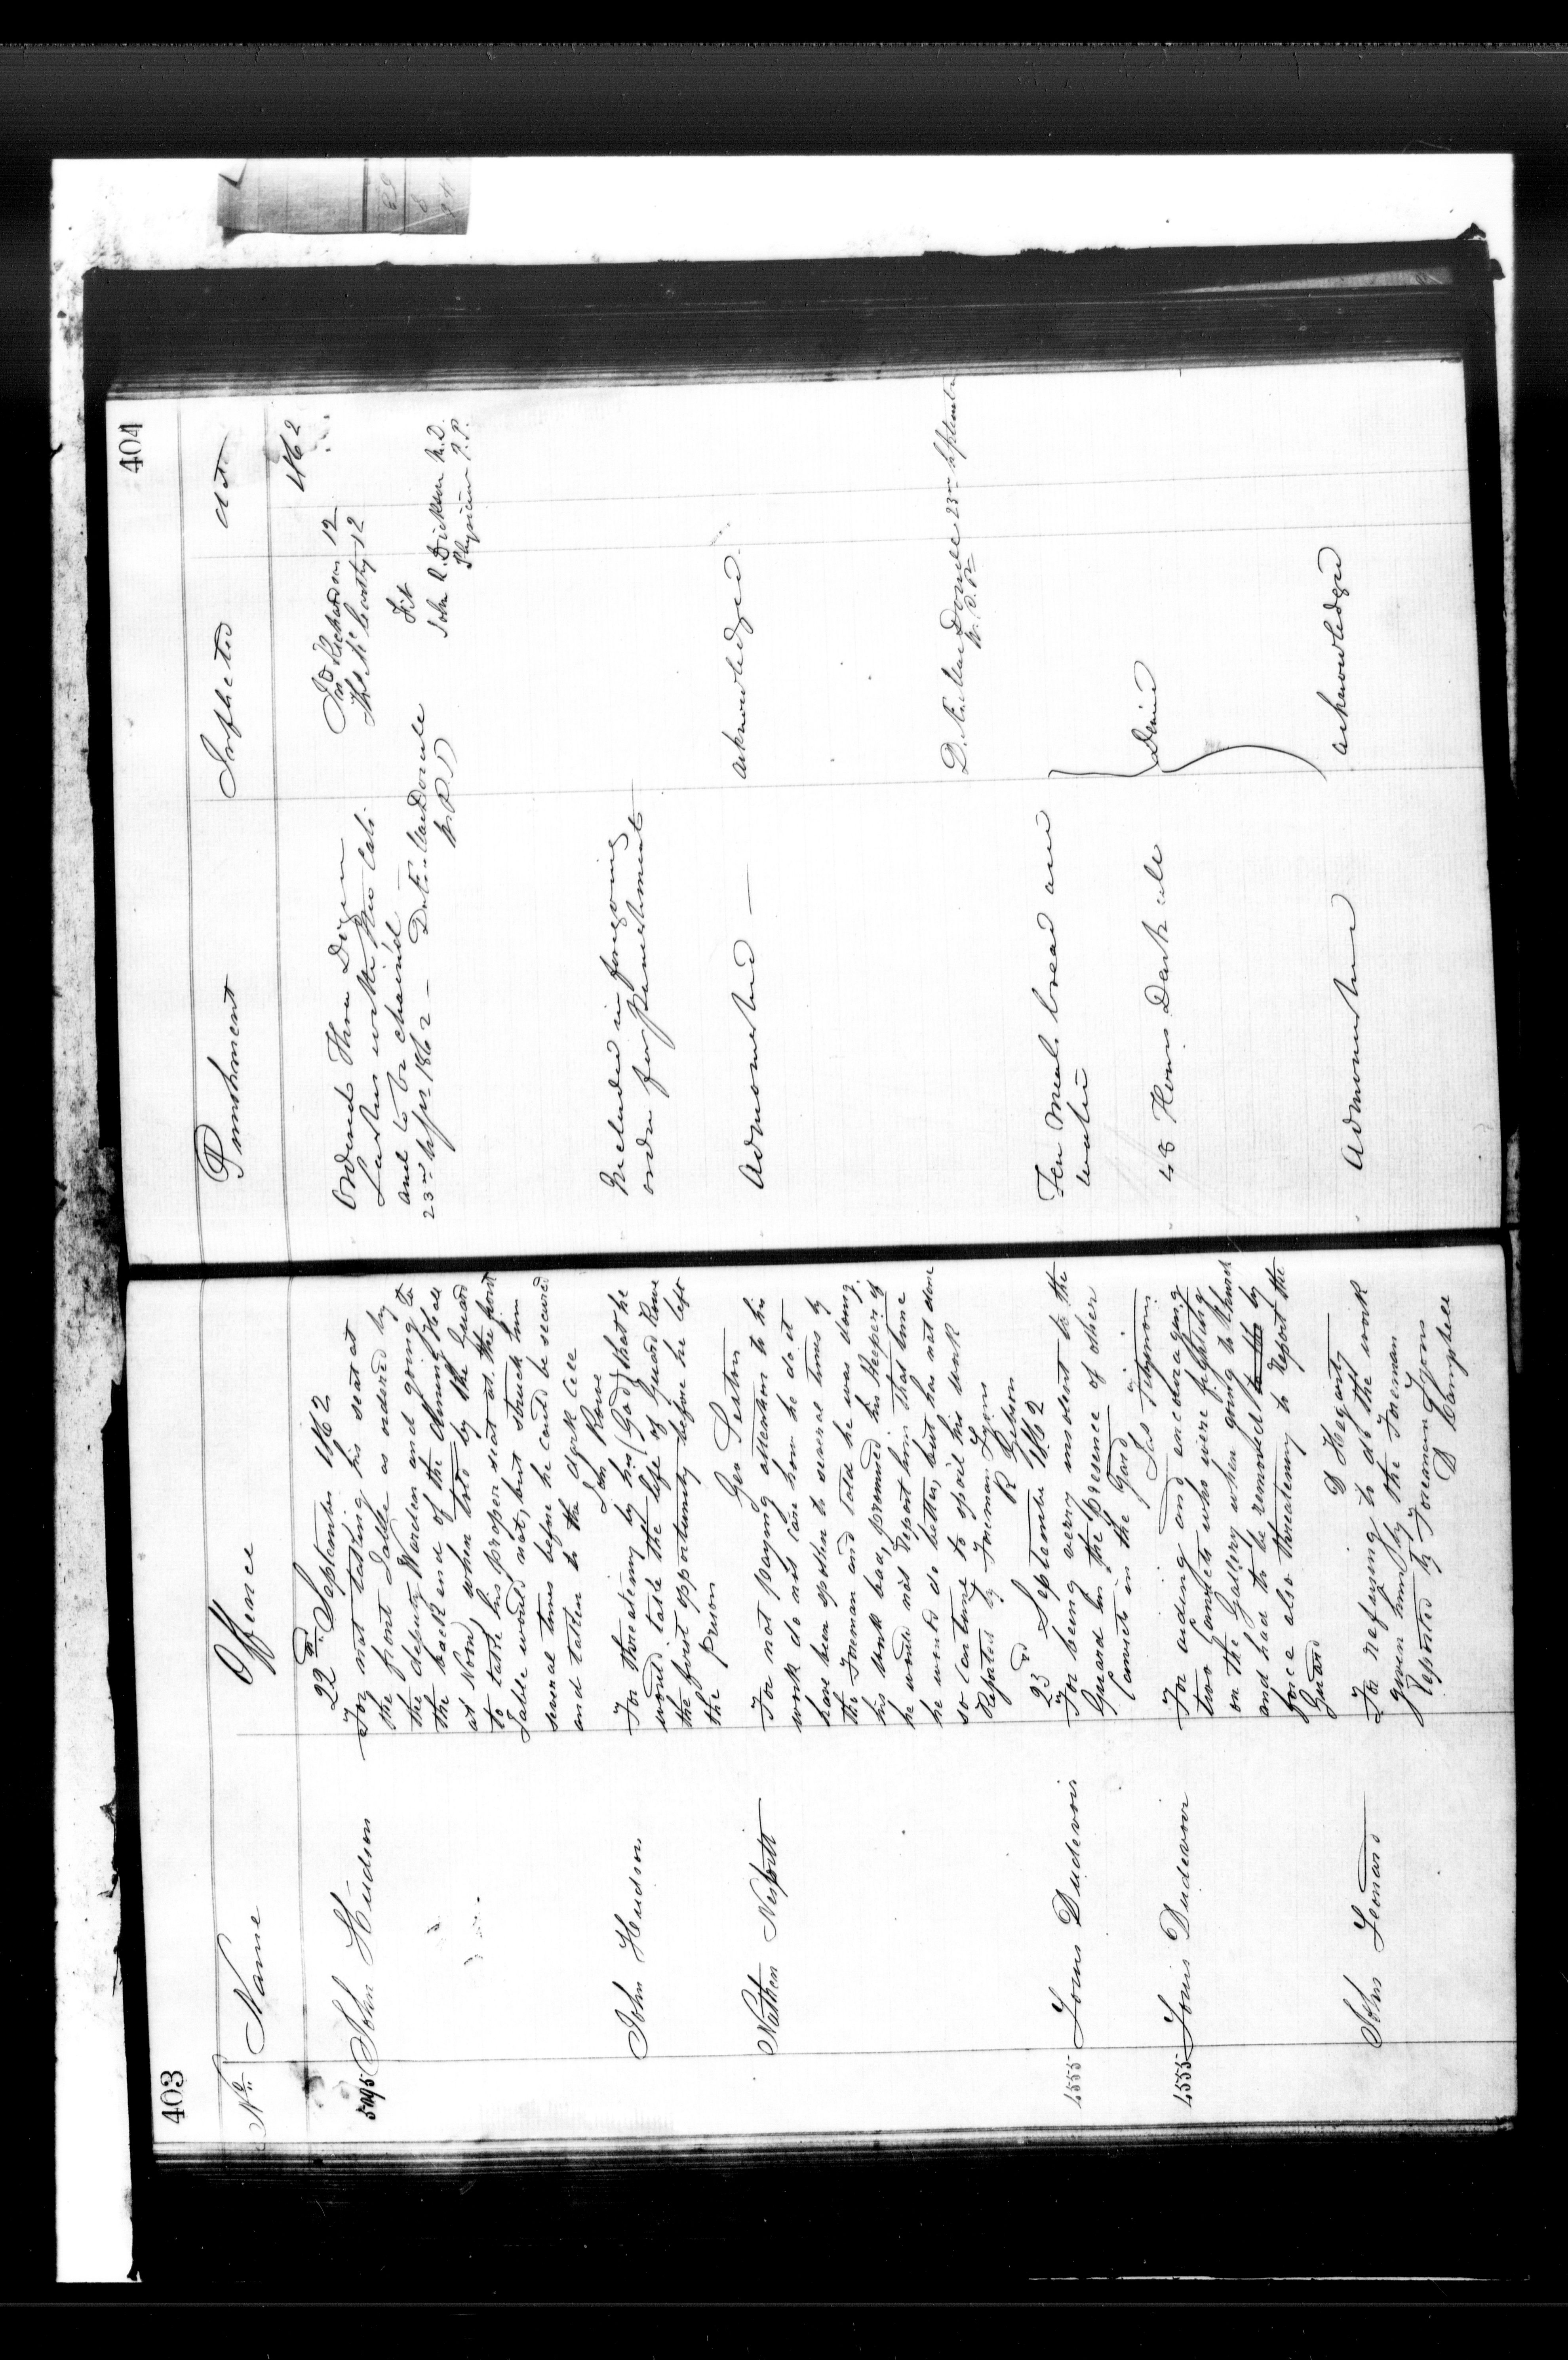 403
No. Name Offence
22nd September 1862
5095 John Hudson For not taking his seat at
the front Table as ordered by
the deputy Warden and going to
the back end of the dining Hall
at Noon, when told by the Guard
to take his proper seat at the front
Table would not, but struck him
several times before he could be secured
and taken to the dark Cell
Jon Rowe
John Hudson For threatening by his (God) that he
would take the life of Guard Rowe
the first opportunity before he left
the prison
Geo Sexton
Nathan For not paying attention to his
work do not care how he do it
have been spoken to several times by
the Foreman and told he was doing
his work bad, promised his Keeper if
he would not Report him that time
he would do better, but has not done
so continue to spoil his work
Reported by Foreman Lyons
R Gibson
23rd September 1862
4555 Louis Dudevoir For being verry insolent to the
Guard in the presence of other
Convicts in the Yard
4555 Louis Dudevoir For aiding and encouraging
two Convicts who were fighting
on the Gallery when going to Church
and had to be removed to the by
force also threatening to Report the
Guard
D Hegarty
John Leonard For refusing to do the work
given him by the Foreman
Reported by Foreman Lyons
D Campbell
404
Punishment Inflicted
1862
Ordered Three Dozen
Lashes with the Cats
and to be chained
23rd Sepr 1862 — D. Æ. MacDonell
W. P. P.
J D Richardson 12
Wm McCarthy 12
Fit
John R. Dickson M.D.
Physician P.P.
Included in foregoing
order for punishment
Admonished — acknowledged
D. Æ. MacDonell 23rd September
W. P. P.
Ten Meals bread and
water
48 Hours Dark cell
Denied
Admonished acknowledged